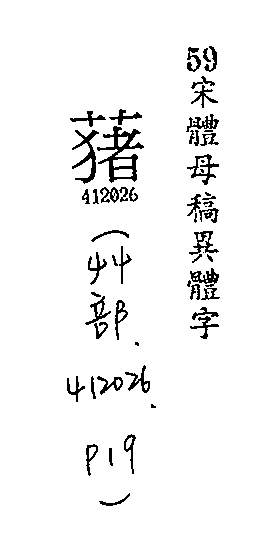 59宋體母稿異體字
蕏
412026
(艸部、412026、P19)